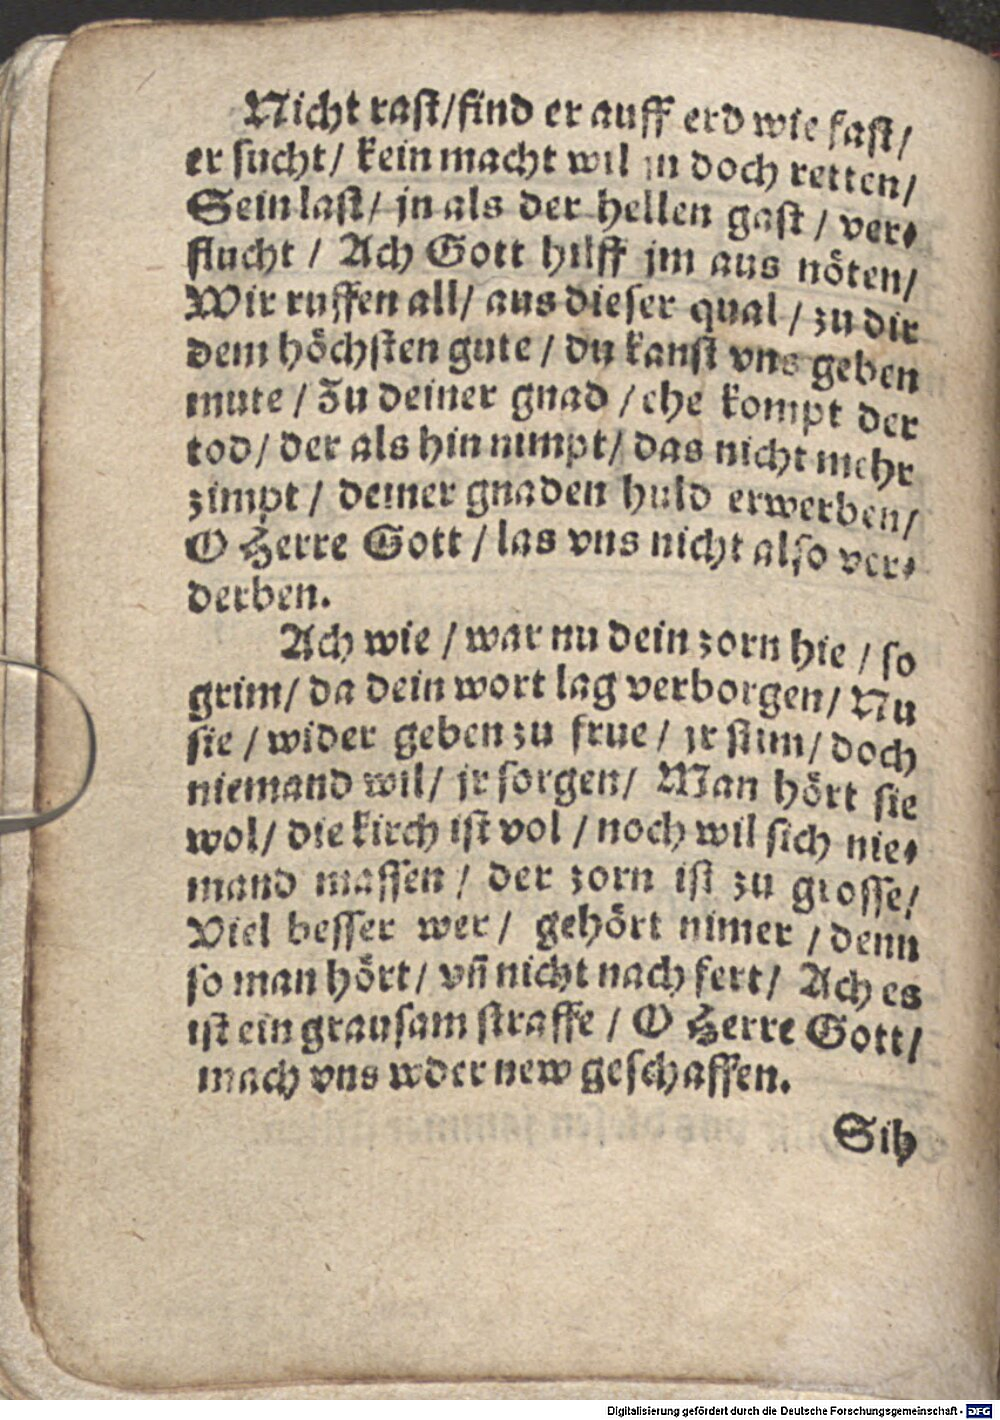 Nicht rast/find er auff erd wie fast/
er sucht/ kein macht wil jn doch retten/
Sein last/ jn als der hellen gast / ver⸗
flucht / Ach Gott hilff jm aus nöten/
Wir ruffen all/ aus dieser qual / zu dir
dem höchsten gute / du kanst vns geben
mute / Zu deiner gnad / ehe kompt der
tod/ der als hin nimpt/ das nicht mehr
zimpt / deiner gnaden huld erwerben/
O Herre Gott / las vns nicht also ver⸗
derben.
Ach wie / war nu dein zorn hie / so
grim/ da dein wort lag verborgen/ Nu
sie / wider geben zu frue / jr stim/ doch
niemand wil/ jr sorgen/ Man hört sie
wol/ die kirch ist vol / noch wil sich nie⸗
mand massen / der zorn ist zu grosse/
Viel besser wer / gehört nimer / denn
so man hört/ vn̄ nicht nach fert/ Ach es
ist ein grausam straffe / O Herre Gott/
mach vns wder new geschaffen.
Sih
Digitalisierung gefördert durch die Deutsche Forschungsgemeinschaft - DFG